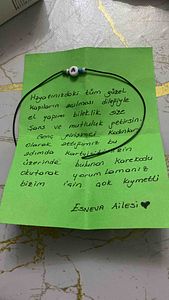 Hayatınızdaki tüm güzel
kapıların açılması dileğiyle
el yapımı bileklik size
Şans ve mutluluk getirsin.
Genç girişimci kadınlar
olarak attığımız bu
adımda
üzerinde bulunan karekodu
okutarak yorumlamanız
bizim için çok kıymetli
ESNEVA AİLESİ